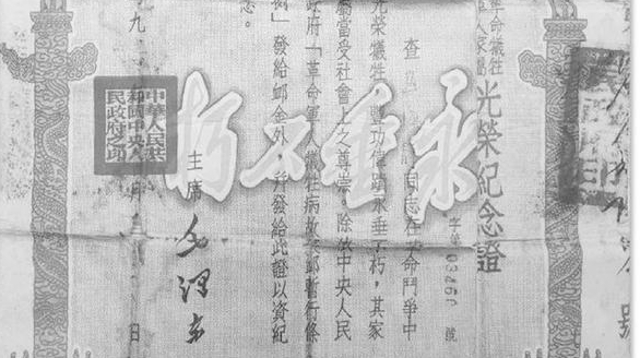 革命犧牲
軍人家屬
光榮紀念證
字第03460號
查 同志在革命鬥爭中
光榮犧牲,豐功偉績永垂不朽,其家
屬當受社會上之尊崇。除依中央人民
政府「革命軍人犧牲病故褒卹暫行條
例」發給卹金外,并發給此證以資紀
念。
永垂不朽
主席 毛澤東
中華人民共
和國中央人
民政府之印
九 月 日